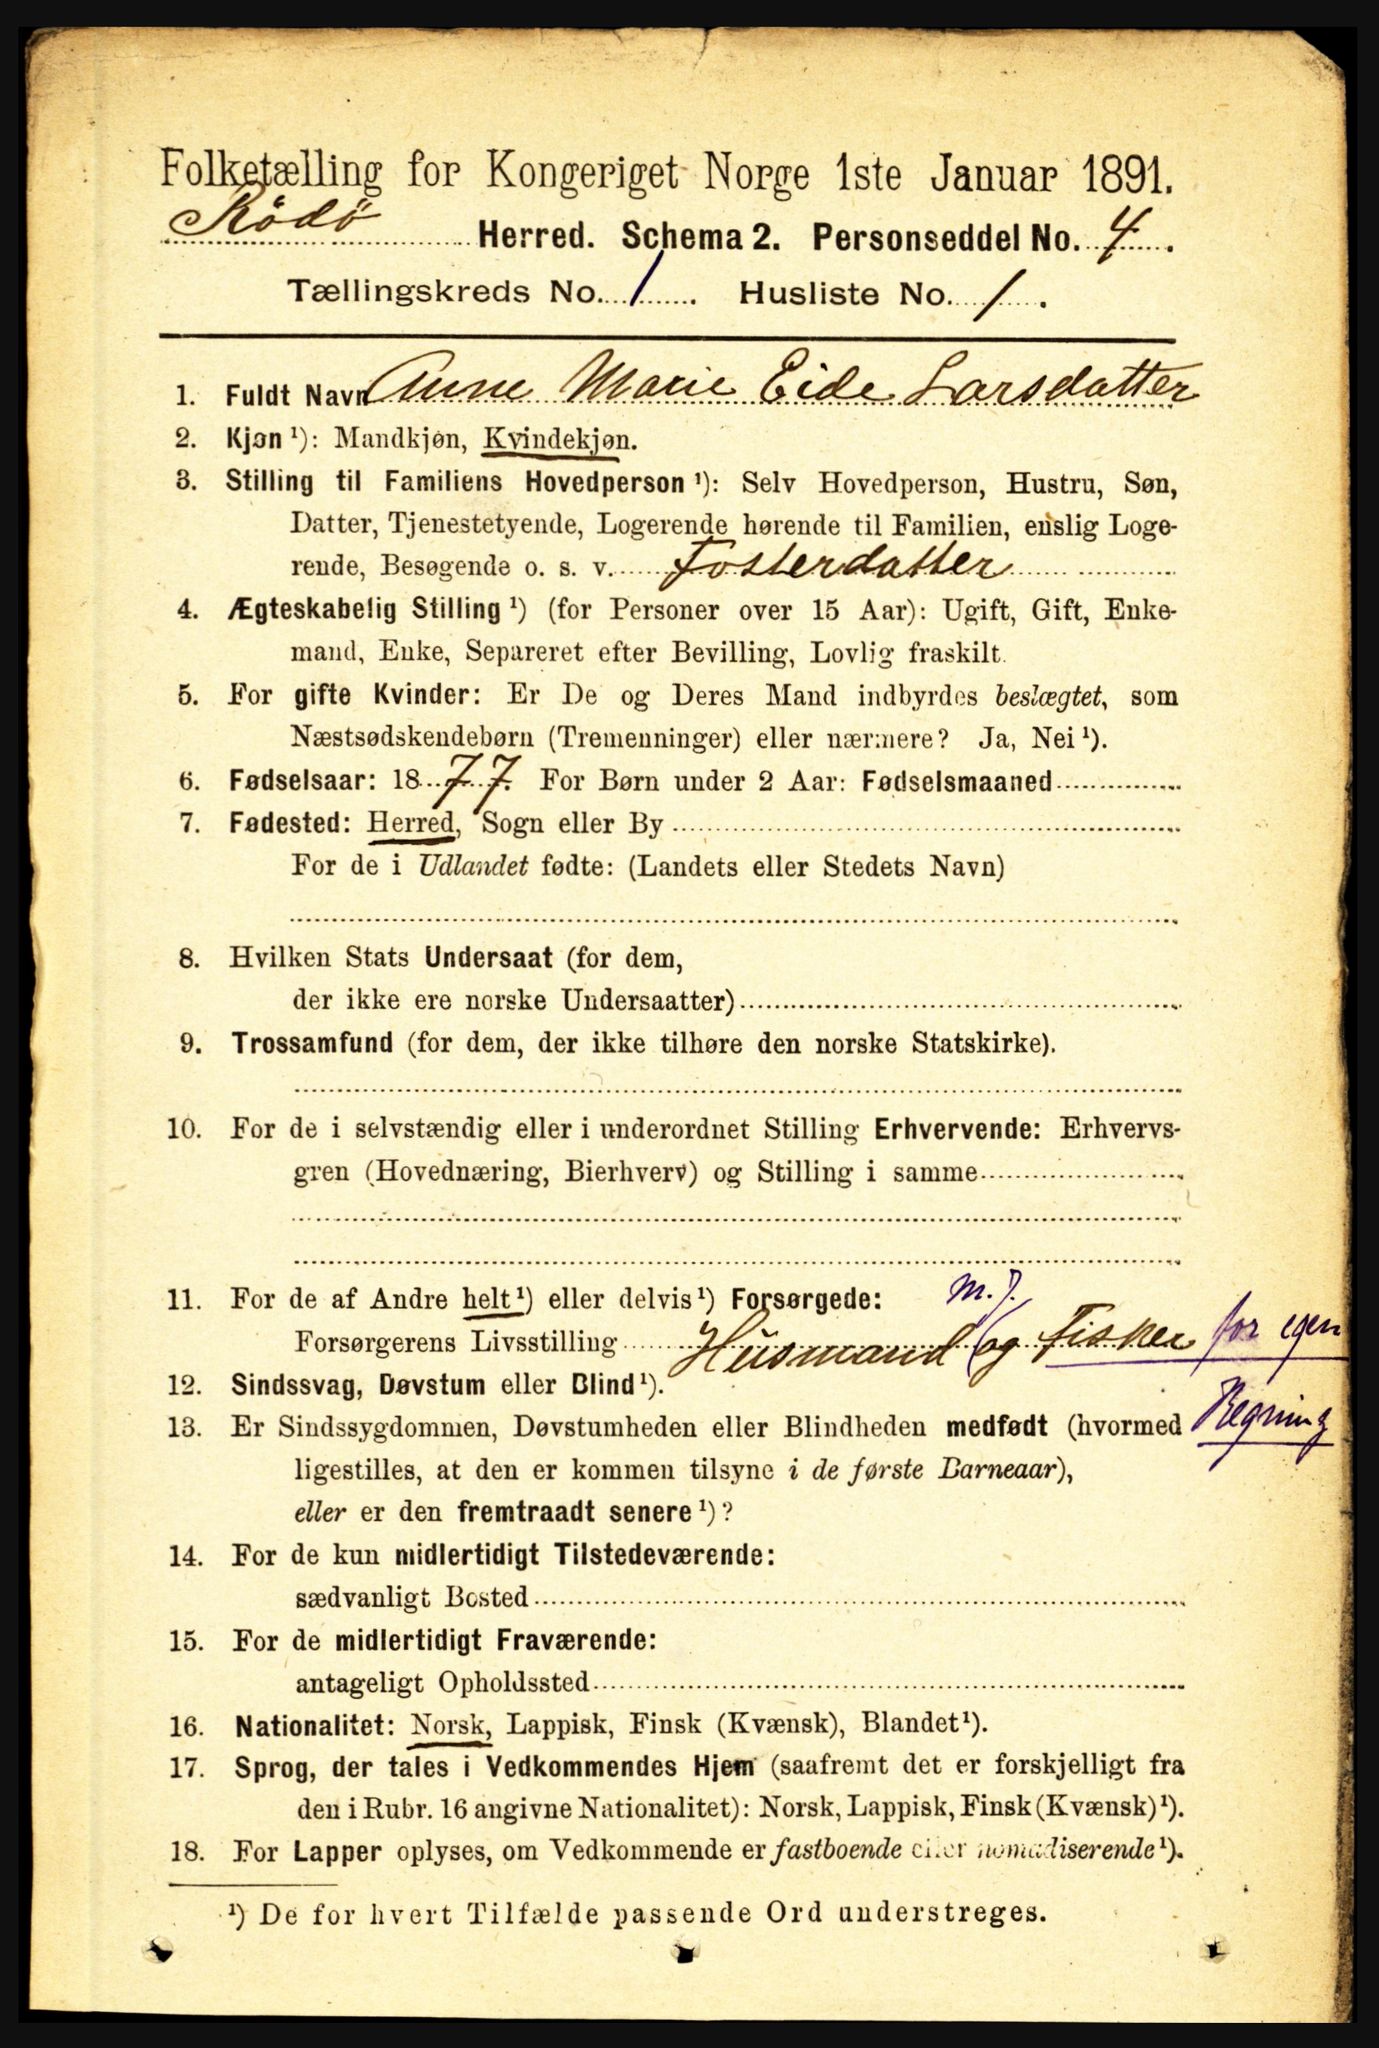 Folketælling for Kongeriget Norge 1ste Januar 1891.
Rödö Herred. Schema 2. Personseddel No. 4.
Tællingskreds No. 1. Husliste No. 1.
1. Fuldt Navn Anne Marie Eide Larsdatter
2. Kjøn ¹): Mandkjøn, Kvindekjøn.
3. Stilling til Familiens Hovedperson ¹): Selv Hovedperson, Hustru, Søn,
Datter, Tjenestetyende, Logerende hørende til Familien, enslig Loge-
rende, Besøgende o. s. v. Fosterdatter
4. Ægteskabelig Stilling ¹) (for Personer over 15 Aar): Ugift, Gift, Enke-
mand, Enke, Separeret efter Bevilling, Lovlig fraskilt.
5. For gifte Kvinder: Er De og Deres Mand indbyrdes beslægtet, som
Næstsødskendebørn (Tremenninger) eller nærmere? Ja, Nei ¹).
6. Fødselsaar: 1877. For Børn under 2 Aar: Fødselsmaaned
7. Fødested: Herred, Sogn eller By
For de i Udlandet fødte: (Landets eller Stedets Navn)
8. Hvilken Stats Undersaat (for dem,
der ikke ere norske Undersaatter)
9. Trossamfund (for dem, der ikke tilhøre den norske Statskirke).
10. For de i selvstændig eller i underordnet Stilling Erhvervende: Erhvervs-
gren (Hovednæring, Bierhverv) og Stilling i samme
11. For de af Andre helt ¹) eller delvis ¹) Forsørgede: m. J.
Forsørgerens Livsstilling Husmand (og Fisker for egen
Regning
12. Sindssvag, Døvstum eller Blind ¹).
13. Er Sindssygdommen, Døvstumheden eller Blindheden medfødt (hvormed
ligestilles, at den er kommen tilsyne i de første Barneaar),
eller er den fremtraadt senere ¹)?
14. For de kun midlertidigt Tilstedeværende:
sædvanligt Bosted
15. For de midlertidigt Fraværende:
antageligt Opholdssted
16. Nationalitet: Norsk, Lappisk, Finsk (Kvænsk), Blandet ¹).
17. Sprog, der tales i Vedkommendes Hjem (saafremt det er forskjelligt fra
den i Rubr. 16 angivne Nationalitet): Norsk, Lappisk, Finsk (Kvænsk) ¹).
18. For Lapper oplyses, om Vedkommende er fastboende eller nomadiserende ¹).
¹) De for hvert Tilfælde passende Ord understreges.